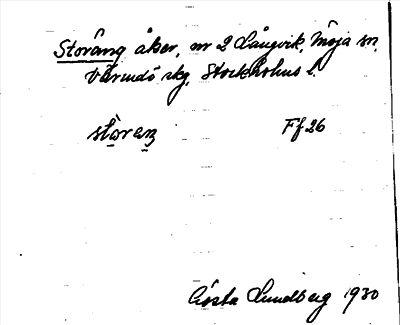 Storäng åker, nr 2 Långvik, Möja sn,
Värmdö skg, Stockholms l.
störeŋ Ff 26
Gösta Lundberg 1930